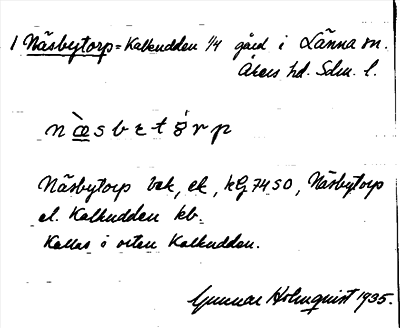 1 Näsbytorp = Kalkudden 1/4 gård i Länna sn.
Åkers hd. Sdm. l.
næ̀sbɛtórp
Näsbytorp bek, ek, kG 74 SO, Näsbytorp
el. Kalkudden kb.
Kallas i orten Kalkudden.
Gunnar Holmquist 1935.